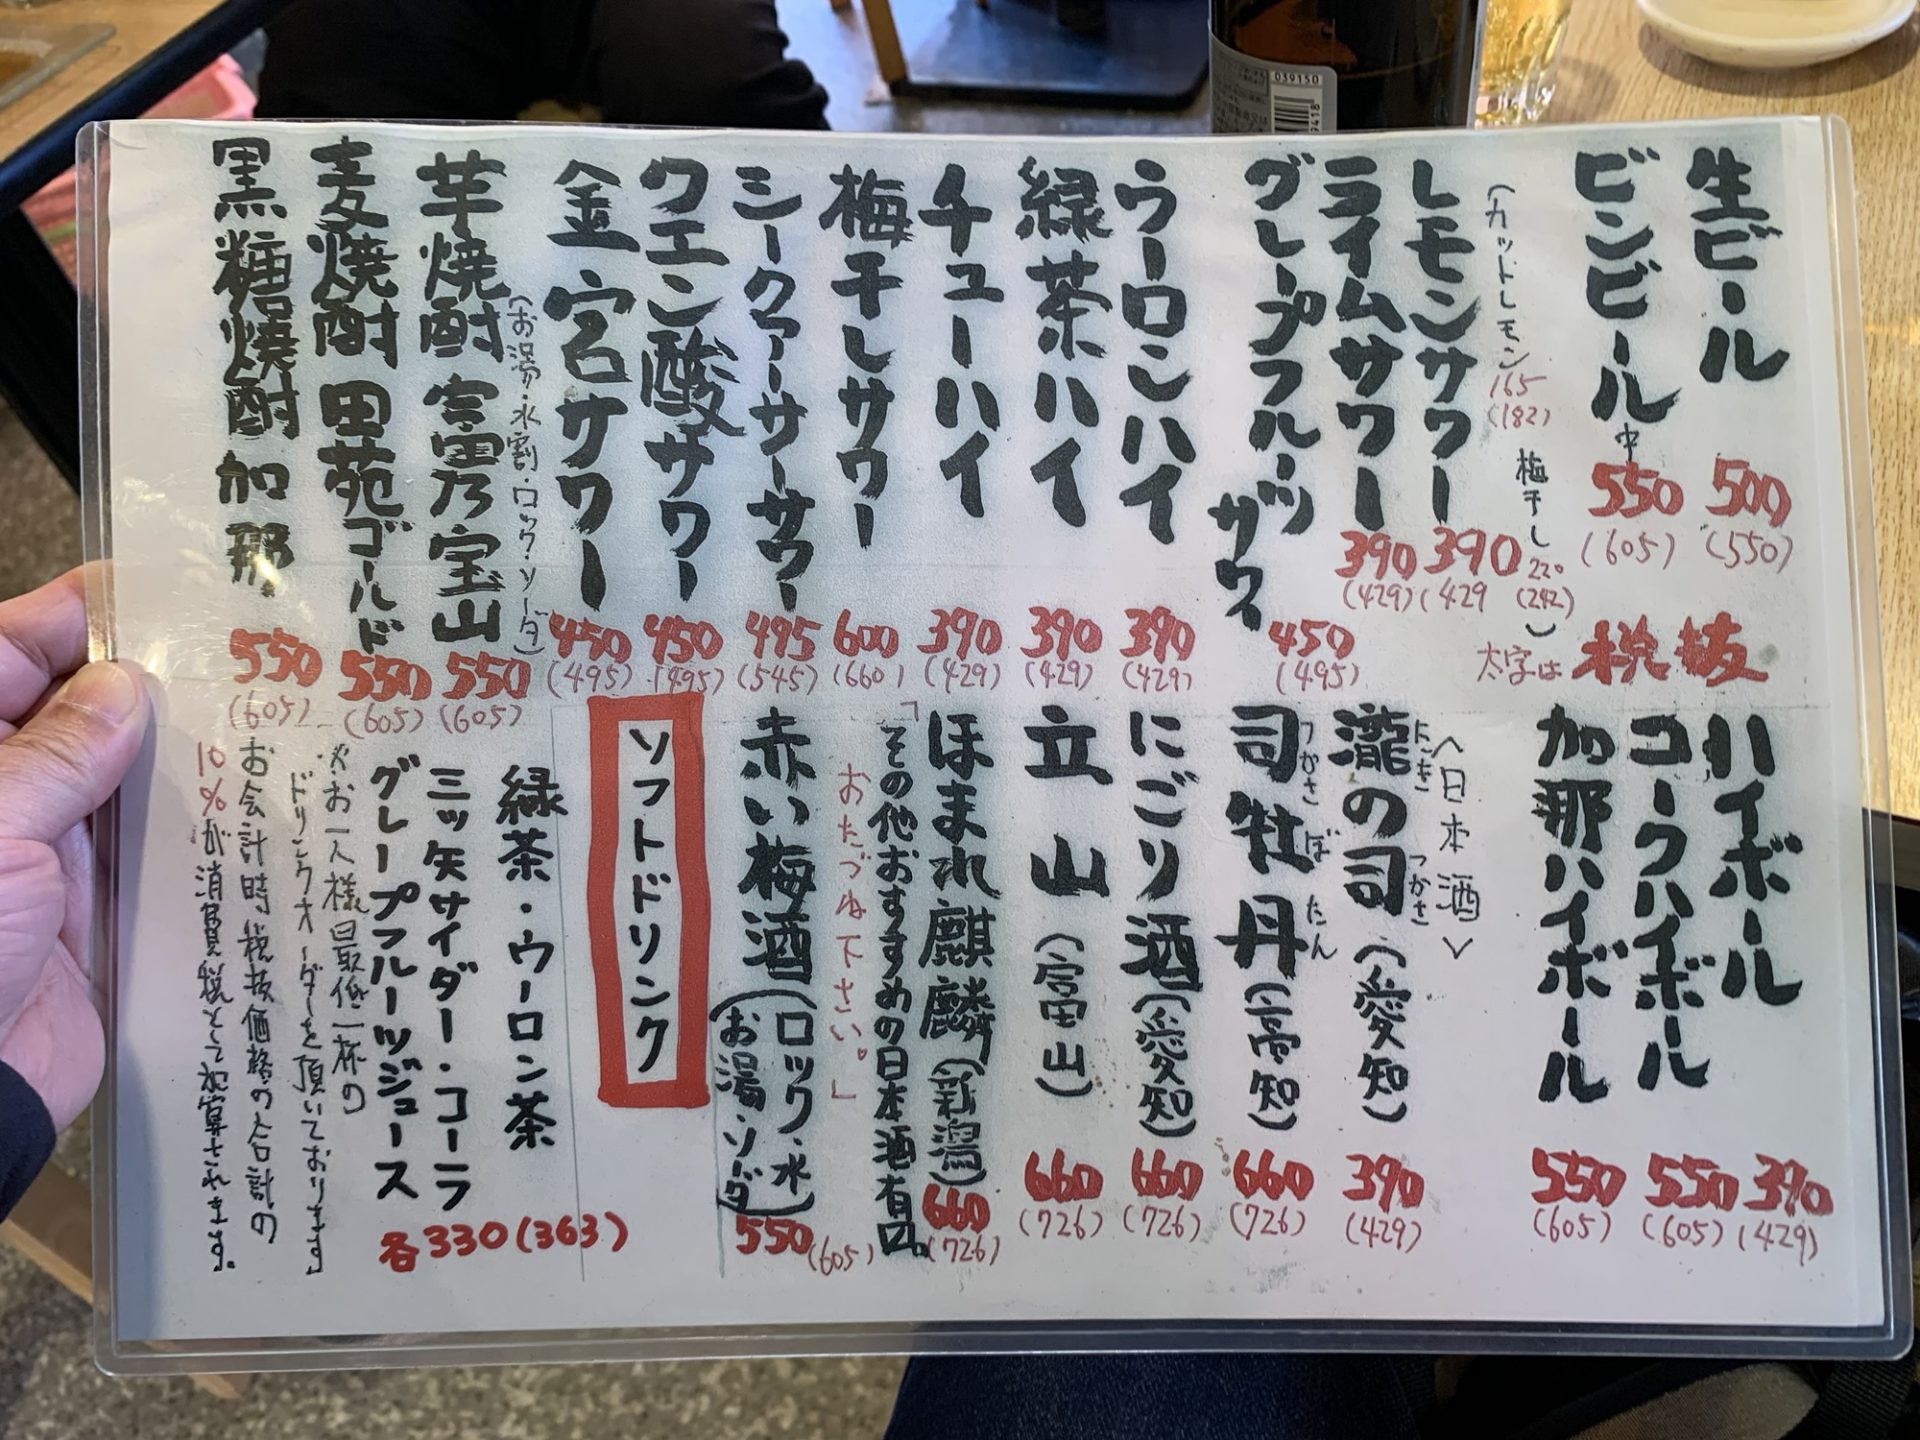 生ビール 500 (550)
ビンビール 中 550 (605)
(カットレモン 165 (182) 梅干し 220 (242))
レモンサワー 390 (429
ライムサワー 390 (429)
グレープフルーツサワー 450 (495)
ウーロンハイ 390 (429)
緑茶ハイ 390 (429)
チューハイ 390 (429)
梅干しサワー 600 (660)
シークァーサーサワー 495 (545)
クエン酸サワー 450 (495)
金宮サワー 450 (495)
(お湯・水割・ロック・ソーダ)
芋焼酎 富乃宝山 550 (605)
麦焼酎 田苑ゴールド 550 (605)
黒糖焼酎 加那 550 (605)
太字は 税抜
ハイボール 390 (429)
コークハイボール 550 (605)
加那ハイボール 550 (605)
<日本酒>
瀧の司 (愛知) 390 (429)
つかさ ぼたん
司牡丹 (高知) 660 (726)
にごり酒 (愛知) 660 (726)
立山 (富山) 660 (726)
ほまれ麒麟 (新潟) 660 (726)
「その他おすすめの日本酒有ﾘ〼
おたづね下さい。」
赤い梅酒 (ロック・水 お湯・ソーダ) 550 (605)
ソフトドリンク
緑茶・ウーロン茶
三ッ矢サイダー・コーラ
グレープフルーツジュース
各330 (363)
※お一人様最低一杯の
ドリンクオーダーを頂いております
お会計時税抜価格の合計の
10%が消費税として加算されます。